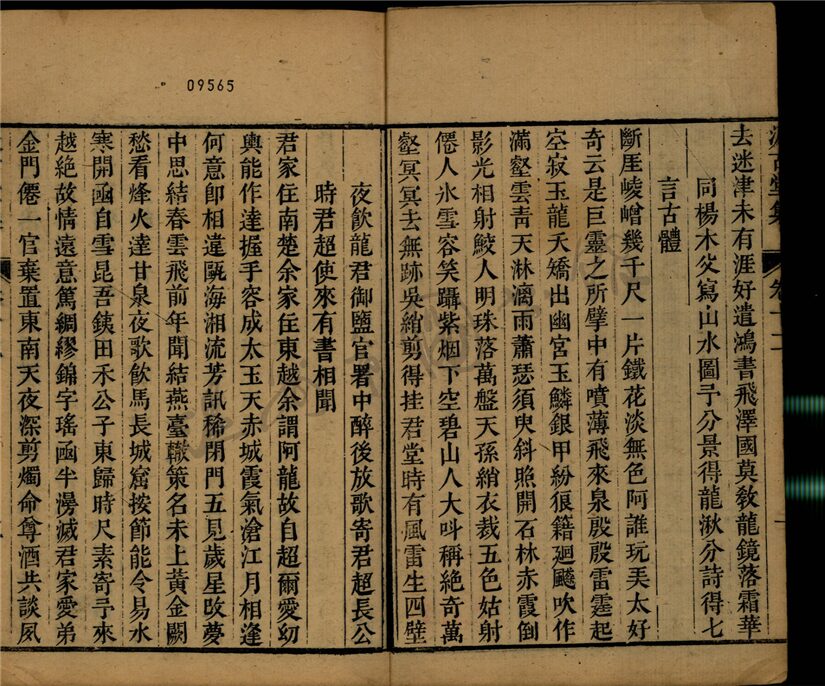 09565
去迷津未有涯好遣鴻書飛澤國莫敎龍鏡落霜華
同楊木父寫山水圖予分景得龍湫分詩得七
言古體
斷厓崚嶒幾千尺一片鐵花淡無色阿誰玩美太好
奇云是巨靈之所擘中有噴薄飛來泉殷殷雷霆起
空寂玉龍夭矯出幽宮玉鱗銀甲紛狼籍廻飈吹作
滿壑雲靑天淋漓雨蕭瑟須臾斜照開石林赤霞倒
影光相射鮫人明珠落萬盤天孫綃衣裁五色姑射
僊人氷雪容笑躡紫烟下空碧山人大呌稱絶奇萬
壑冥冥去無跡吳綃剪得挂君堂時有風雷生四壁
夜飮龍君御鹽官署中醉後放歌寄君超長公
時君超使來有書相聞
君家住南楚余家住東越余謂阿龍故自超爾愛幼
輿能作達握手容成太玉天赤城霞氣滄江月相逢
何意卽相違甌海湘流芳訊稀閉門五見歲星改夢
中思結春雲飛前年聞結燕臺轍策名未上黃金闕
愁看烽火達甘泉夜歌飮馬長城窟按節能令易水
寒開函自雪昆吾鐵田禾公子東歸時尺素寄予來
越絶故情遠意篤綢繆錦字瑤函半漫滅君家愛弟
金門僊一官棄置東南天夜深剪燭命尊酒共談夙